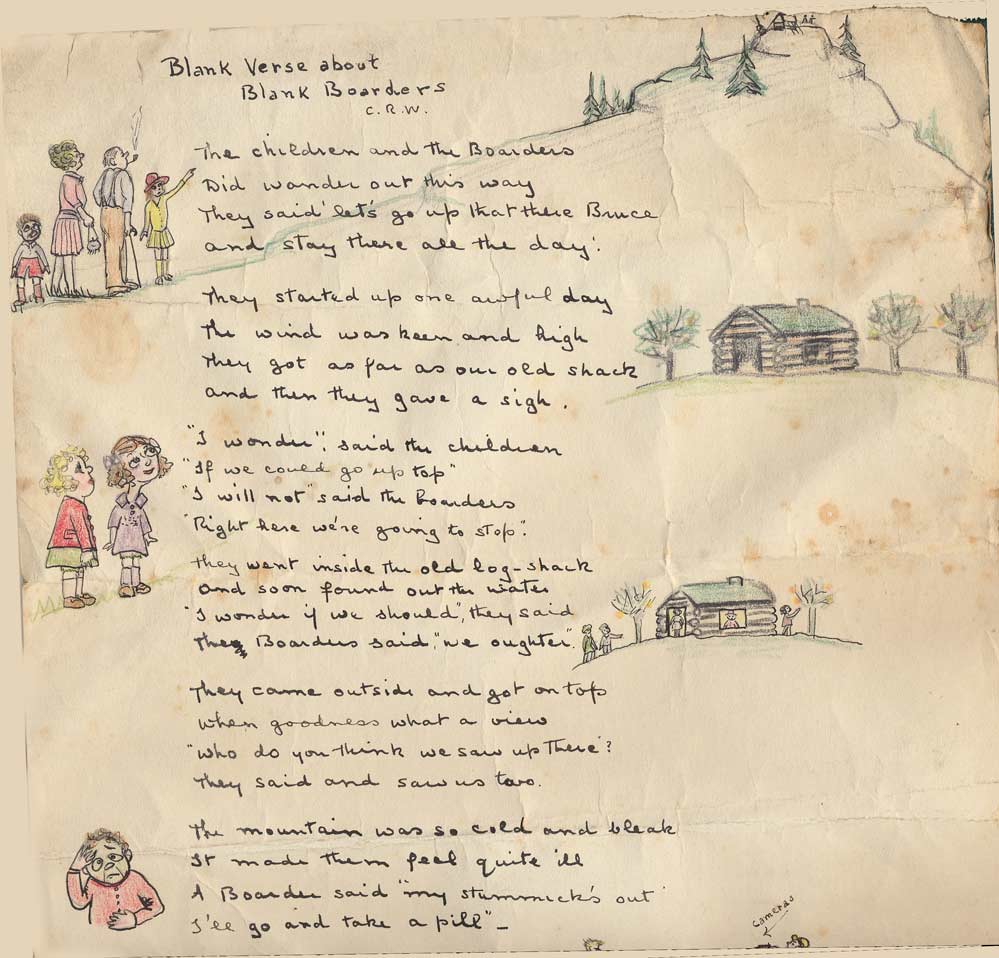 Blank Verse about
Blank Boarders
C.R.W.
The children and the Boarders
Did wander out this way
They said 'let's go up that there Bruce
and stay there all the day'.
They started up one awful day
The wind was keen and high
They got as far as our old shack
and then they gave a sigh.
"I wonder", said the children
"If we could go up top"
"I will not" said the Boarders
"Right here we're going to stop".
They went inside the old log-shack
and soon found out the water
"I wonder if we should", they said
The Boarders said, "we oughter".
They came outside and got on top
When goodness what a view
"Who do you think we saw up there"?
They said and saw us two.
The mountain was so cold and bleak
It made them feel quite 'ill
A Boarder said "my stummick's out'
I'll go and take a pill" –
Cameras